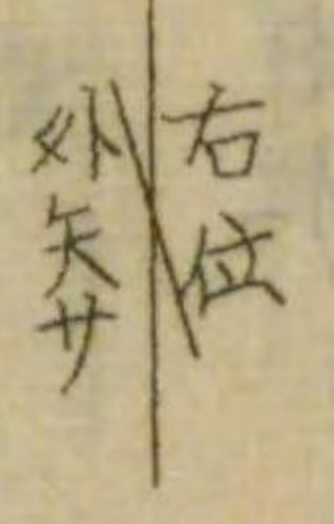 右位
外矢サ